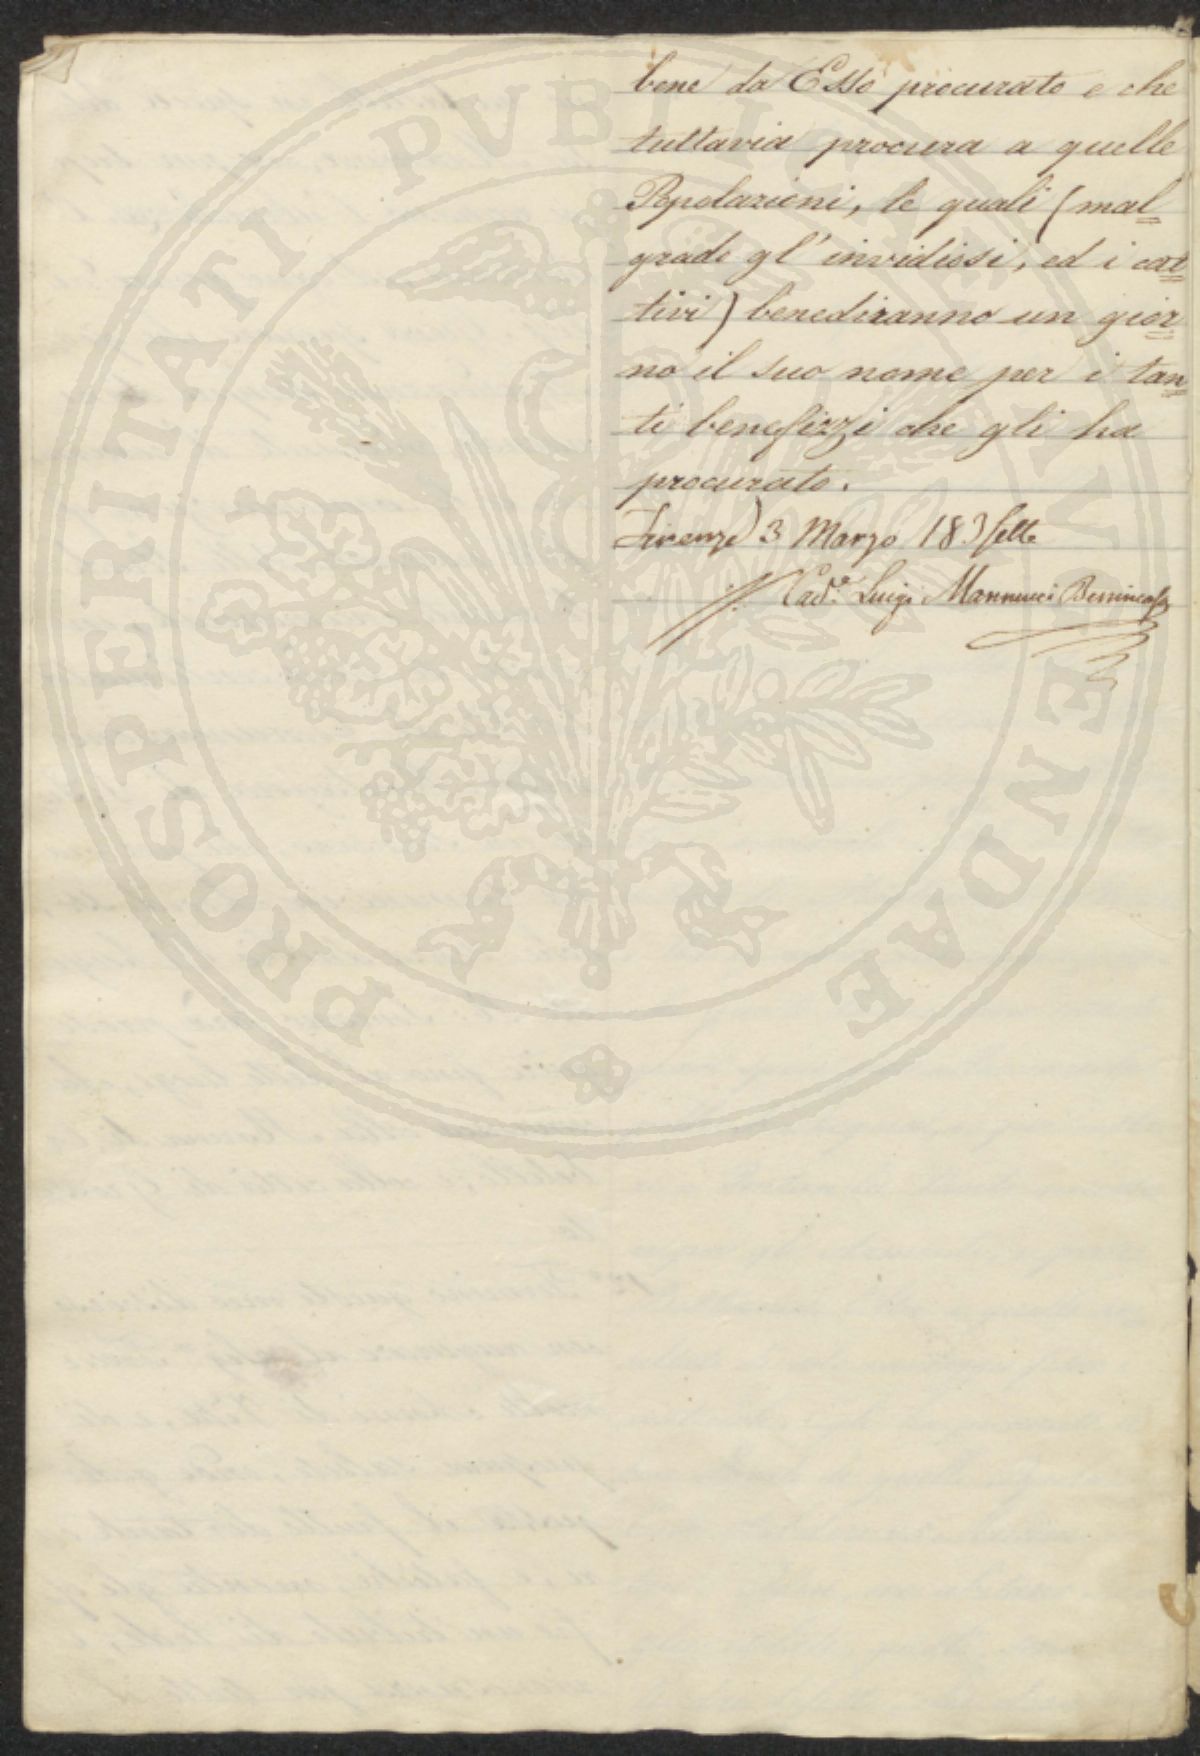 bene da Esso procurato e che
tuttavia procura a quelle
Popolazioni, le quali (mal=
grado gl' invidiosi, ed i cat=
tivi) benediranno un gior=
no il suo nome per i tan=
ti benefizzi che gli ha
procurato.
Firenze 3 Marzo 183sette
Cav.e Luigi Mannucci Benincasa
PROSPERITATI PVBLICAE AVGENDAE